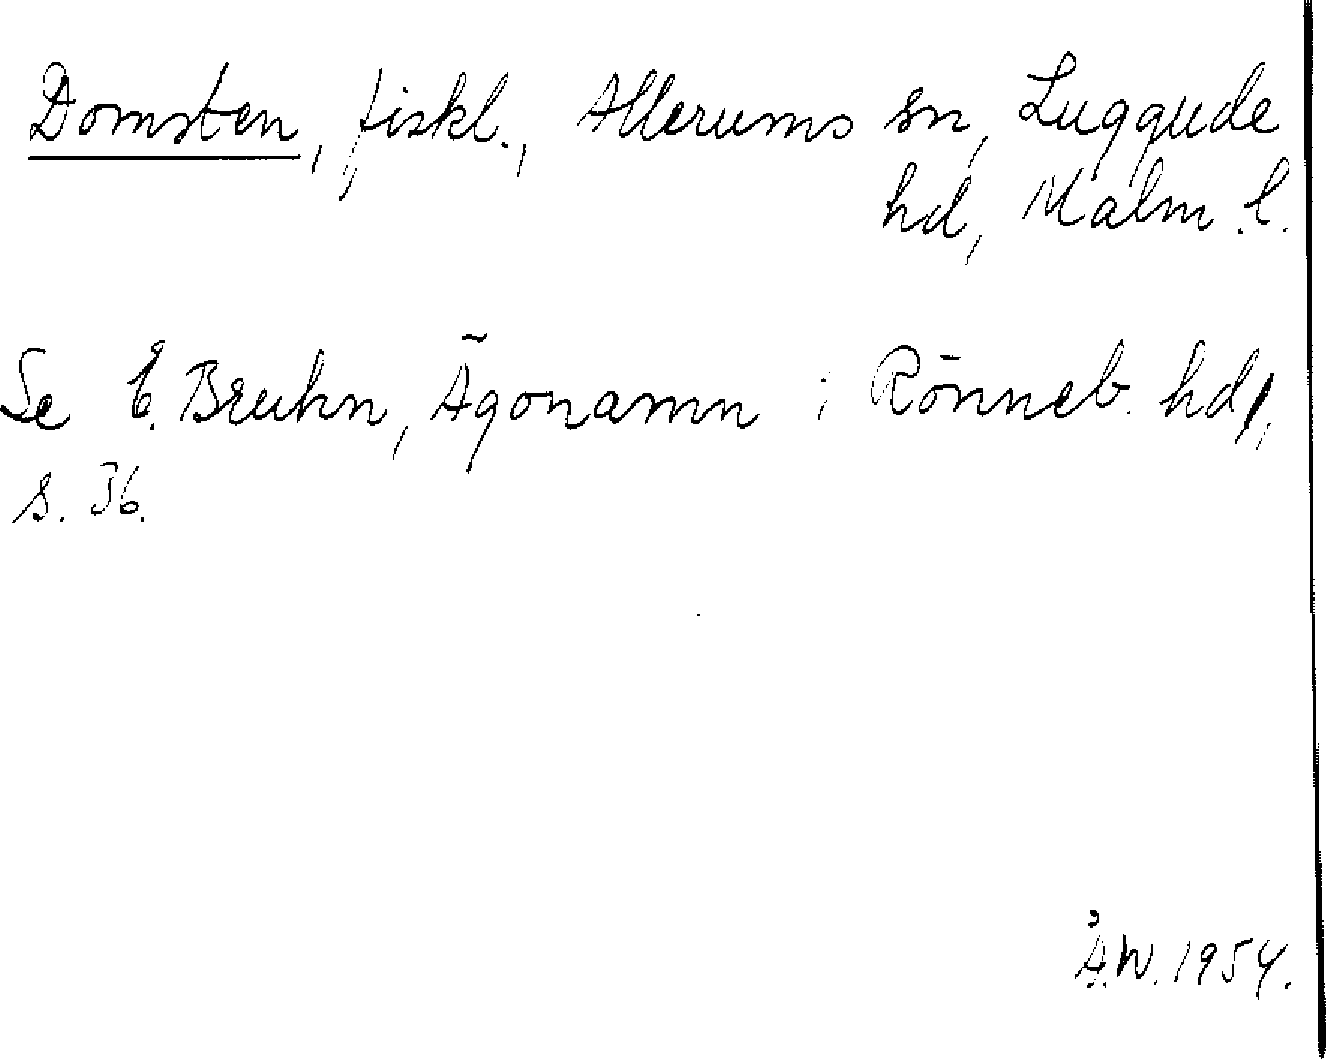 Domsten, fiskl., Allerums sn, Luggude
hd, Malm. l.
Se E. Bruhn, Ägonamn i Rönneb. hd,
s. 36.
Å.W. 1954.